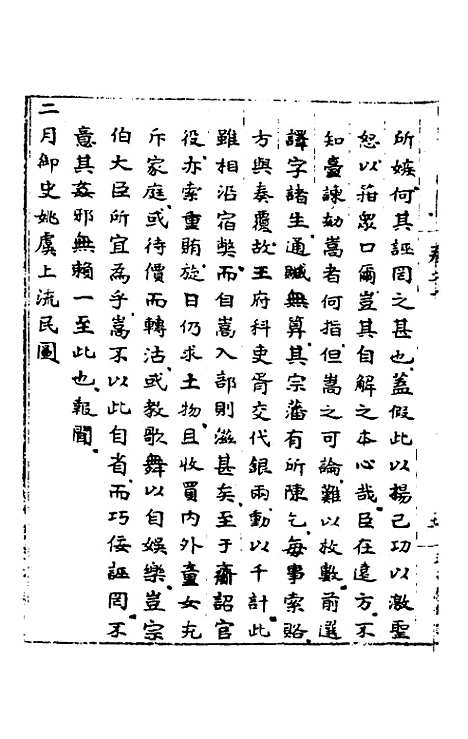 所嫉何其誣罔之甚也蓋假此以揚己功以激聖
恕以箝眾口爾豈其自解之本心哉臣在遠方不
知臺諫劾嵩者何指但嵩之可論難以枚數前選
譯字諸生通贓無算其宗藩有所陳乞每事索賂
方與奏覆故王府科吏胥交代銀兩動以千計此
雖相沿宿弊而自嵩入部則滋甚矣至于齋詔官
役亦索重賄旋日仍求土物且收買內外童女充
斥家庭或待價而轉沽或教歌舞以自娛樂豈宗
伯大臣所宜為乎嵩不以此自省而巧佞誣罔不
意其姦邪無賴一至此也報聞
二月御史姚虞上流民圖